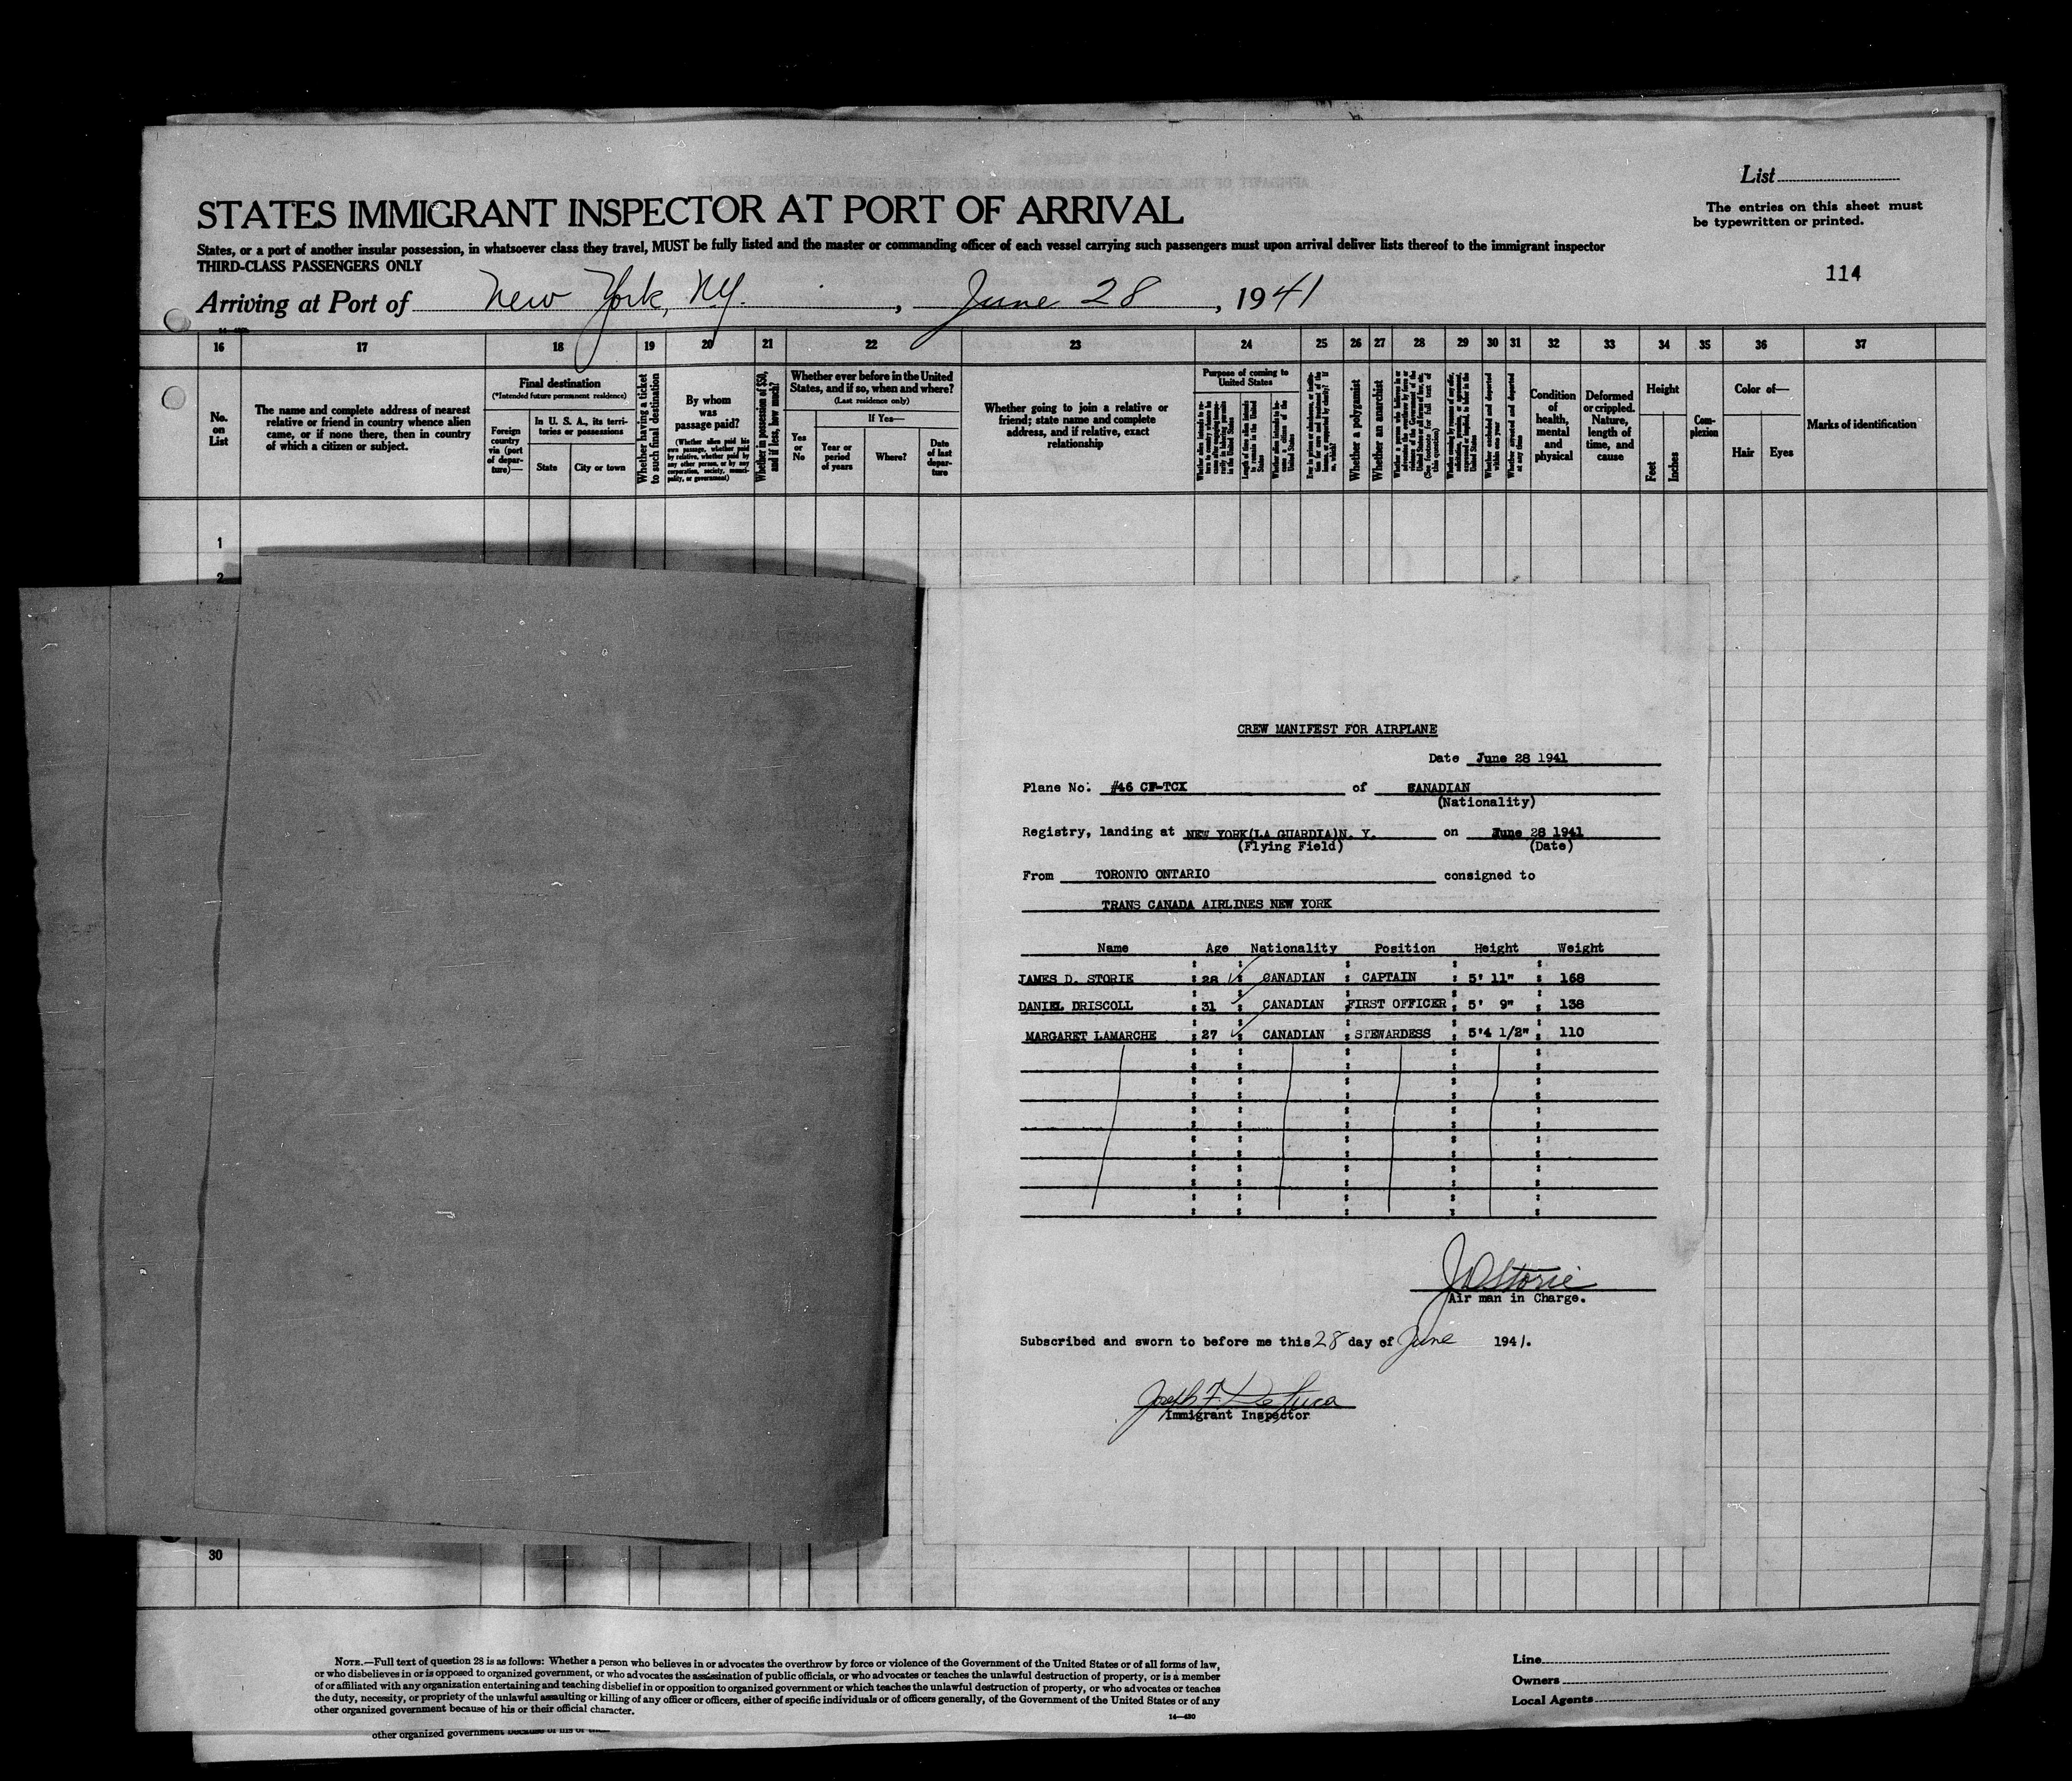 List
The entries on this sheet must
be typewritten or printed.
STATES IMMIGRANT INSPECTOR AT PORT OF ARRIVAL
States, or a port of another insular possession, in whatsoever class they travel, MUST be fully listed and the master or commanding officer of each vessel carrying such passengers must upon arrival deliver lists thereof to the immigrant inspector
THIRD-CLASS PASSENGERS ONLY
114
Arriving at Port of New York, NY. , June 28 , 1941
16 17 18 19 20 21 22 23 24 25 26 27 28 29 30 31 32 33 34 35 36 37
No.
on
List
The name and complete address of nearest
relative or friend in country whence alien
came, or if none there, then in country
of which a citizen or subject.
Final destination
(*Intended future permanent residence)
Foreign
country
via (port
of depar-
ture)—
In U. S. A., its terri-
tories or possessions
State
City or town
Whether having a ticket
to such final destination
By whom
was
passage paid?
(Whether alien paid his
own passage, whether paid
by relative, whether paid by
any other person, or by any
corporation, society, munici-
pality, or government)
Whether in possession of $50,
and if less, how much?
Whether ever before in the United
States, and if so, when and where?
(Last residence only)
Yes
or
No
If Yes—
Year or
period
of years
Where?
Date
of last
depar-
ture
Whether going to join a relative or
friend; state name and complete
address, and if relative, exact
relationship
Purpose of coming to
United States
Whether a polygamist
Whether an anarchist
Condition
of
health,
mental
and
physical
Deformed
or crippled.
Nature,
length of
time, and
cause
Height
Feet
Inches
Com-
plexion
Color of—
Hair
Eyes
Marks of identification
1
2
CREW MANIFEST FOR AIRPLANE
Date June 28 1941
Plane No. #46 CF-TCX of CANADIAN
(Nationality)
Registry, landing at NEW YORK(LA GUARDIA)N. Y. on June 28 1941
(Flying Field) (Date)
From TORONTO ONTARIO consigned to
TRANS CANADA AIRLINES NEW YORK
Name Age Nationality Position Height Weight
JAMES D. STORIE 28 CANADIAN CAPTAIN 5' 11" 168
DANIEL DRISCOLL 31 CANADIAN FIRST OFFICER 5' 9" 138
MARGARET LAMARCHE 27 CANADIAN STEWARDESS 5'4 1/2" 110
JDStorie
Air man in Charge.
Subscribed and sworn to before me this 28 day of June 1941.
Joseph F. De Luca
Immigrant Inspector
30
NOTE.—Full text of question 28 is as follows: Whether a person who believes in or advocates the overthrow by force or violence of the Government of the United States or of all forms of law,
or who disbelieves in or is opposed to organized government, or who advocates the assassination of public officials, or who advocates or teaches the unlawful destruction of property, or is a member
of or affiliated with any organization entertaining and teaching disbelief in or opposition to organized government or which teaches the unlawful destruction of property, or who advocates or teaches
the duty, necessity, or propriety of the unlawful assaulting or killing of any officer or officers, either of specific individuals or of officers generally, of the Government of the United States or of any
other organized government because of his or their official character.
14—430
Line
Owners
Local Agents
other organized government because of his or their